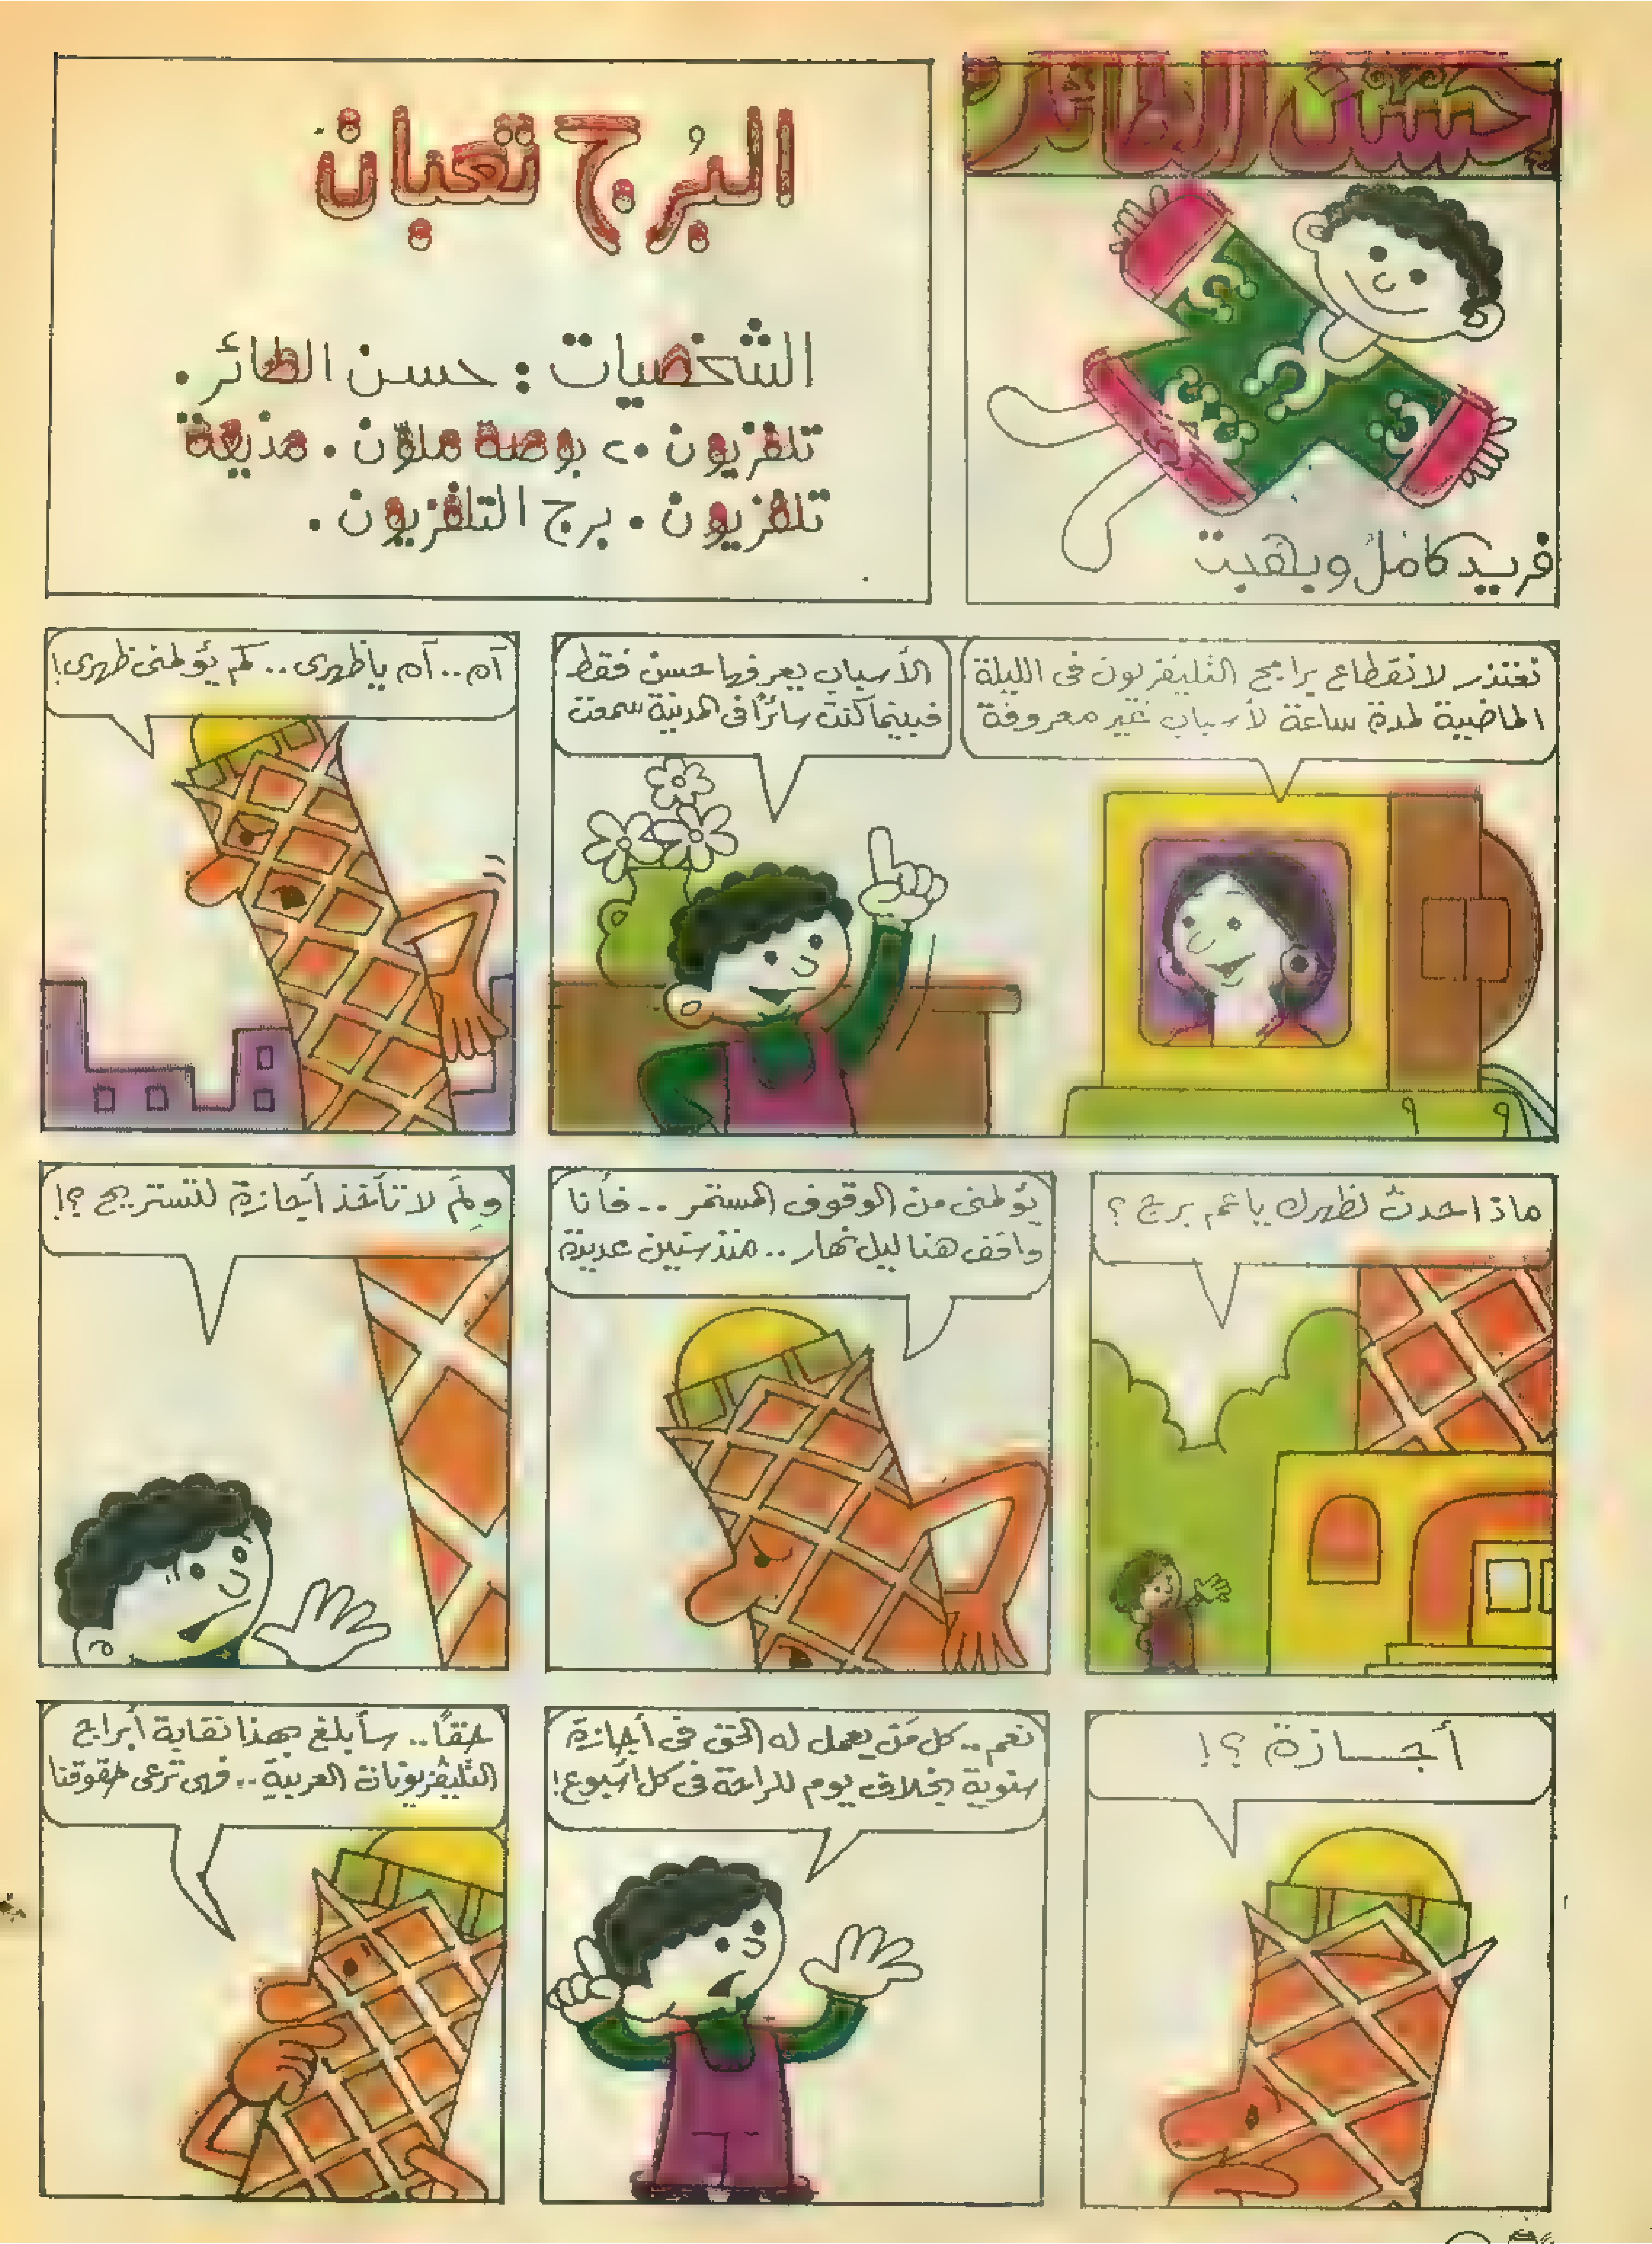 حسن الطائر
فريد كامل وبهجت
البُرج تعبان
الشخصيات : حسن الطائر .
تلفزيون ٢٠ بوصة ملوّن . مذيعة
تلفزيون . برج التلفزيون .
نعتذر لانقطاع برامج التليفزيون فى الليلة
الماضية لمدة ساعة لأسباب غير معروفة
الأسباب يعرفها حسن فقط
فبينما كنت سائرًا فى المدينة سمعت
آه .. آه ياظهرى .. كم يؤلمنى ظهرى !
ماذا حدث لظهرك ياعم برج ؟
يؤلمنى من الوقوف المستمر .. فأنا
واقف هنا ليل نهار .. منذ سنين عديدة
ولِمَ لا تأخذ أجازة لتستريح ؟!
أجـازة ؟!
نعم .. كل مَن يعمل له الحق فى أجازة
سنوية بخلاف يوم للراحة فى كل أسبوع !
حقًا .. سأبلغ بهذا نقابة أبراج
التليفزيونات العربية .. فهى ترعى حقوقنا